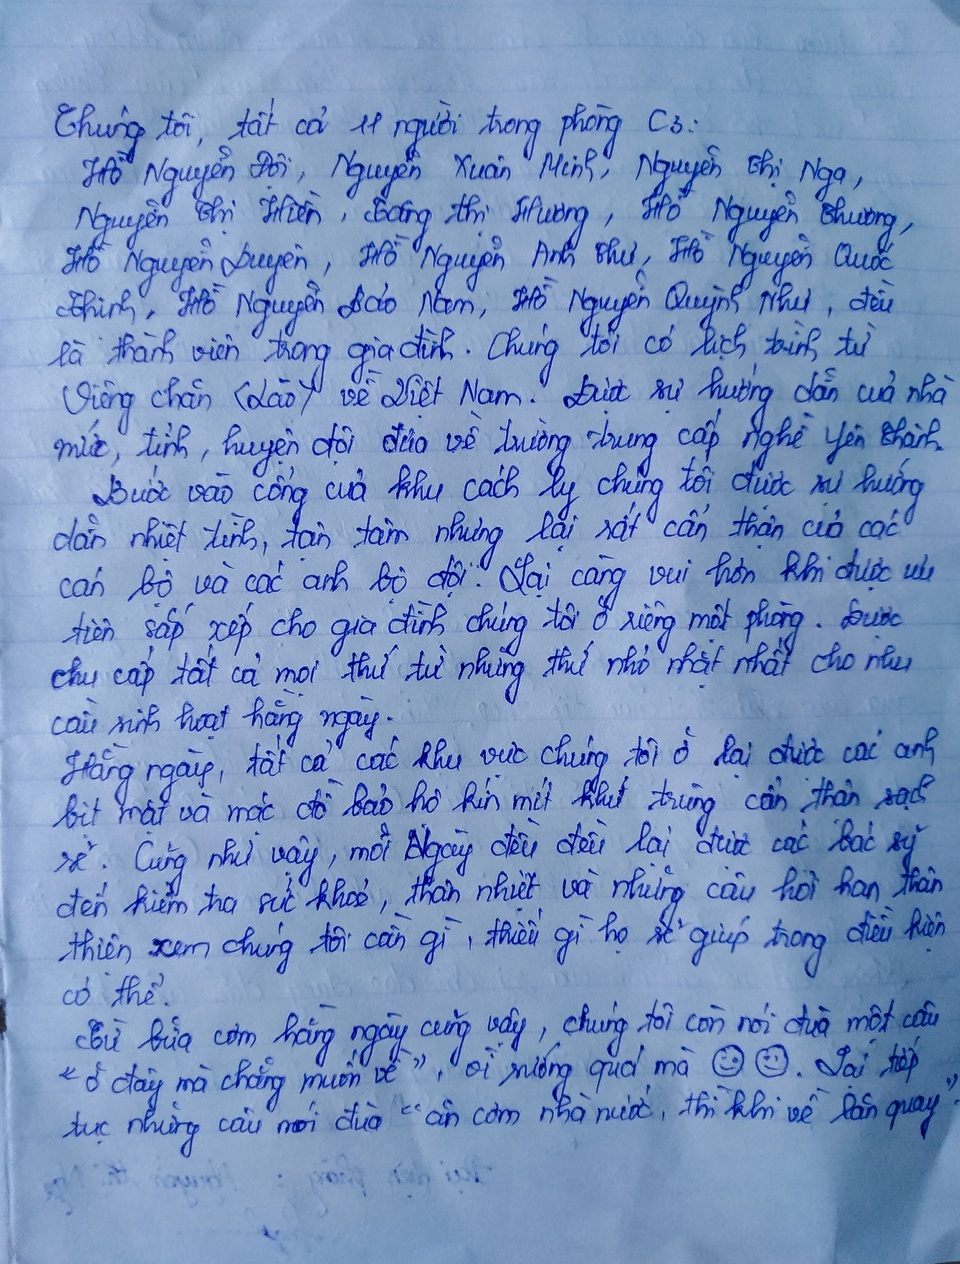 Chúng tôi, tất cả 11 người trong phòng C3:
Hồ Nguyễn Đội, Nguyễn Xuân Minh, Nguyễn Thị Nga,
Nguyễn Thị Hiền, Đăng Thị Hương, Hồ Nguyễn Thương,
Hồ Nguyễn Duyên, Hồ Nguyễn Anh Thư, Hồ Nguyễn Quốc
Thinh, Hồ Nguyễn Bảo Nam, Hồ Nguyễn Quỳnh Như, đều
là thành viên trong gia đình. Chúng tôi có lịch trình từ
Viêng chăn (Lào) về Việt Nam. Được sự hướng dẫn của nhà
nước, tỉnh, huyện đội đưa về trường trung cấp nghề Yên Thành.
Bước vào cổng của khu cách ly chúng tôi được sự hướng
dẫn nhiệt tình, tận tâm nhưng lại rất cẩn thận của các
cán bộ và các anh bộ đội. Lại càng vui hơn khi được ưu
tiên sắp xếp cho gia đình chúng tôi ở riêng một phòng. Được
chu cấp tất cả mọi thứ từ những thứ nhỏ nhặt nhất cho nhu
cầu sinh hoạt hằng ngày.
Hằng ngày, tất cả các khu vực chúng tôi ở lại được các anh
bịt mặt và mặc đồ bảo hộ kín mít khử trùng cẩn thận sạch
sẽ. Cũng như vậy, mỗi Ngày đều đều lại được các bác sỹ
đến kiểm tra sức khoẻ, thân nhiệt và những câu hỏi han thân
thiện xem chúng tôi cần gì, thiếu gì họ sẽ giúp trong điều kiện
có thể.
Từ bữa cơm hằng ngày cũng vậy, chúng tôi còn nói đùa một câu
"ở đây mà chẳng muốn về", ơi sướng quá mà. Lại tiếp
tục những câu nói đùa "ăn cơm nhà nước, thì khi về lăn quay"